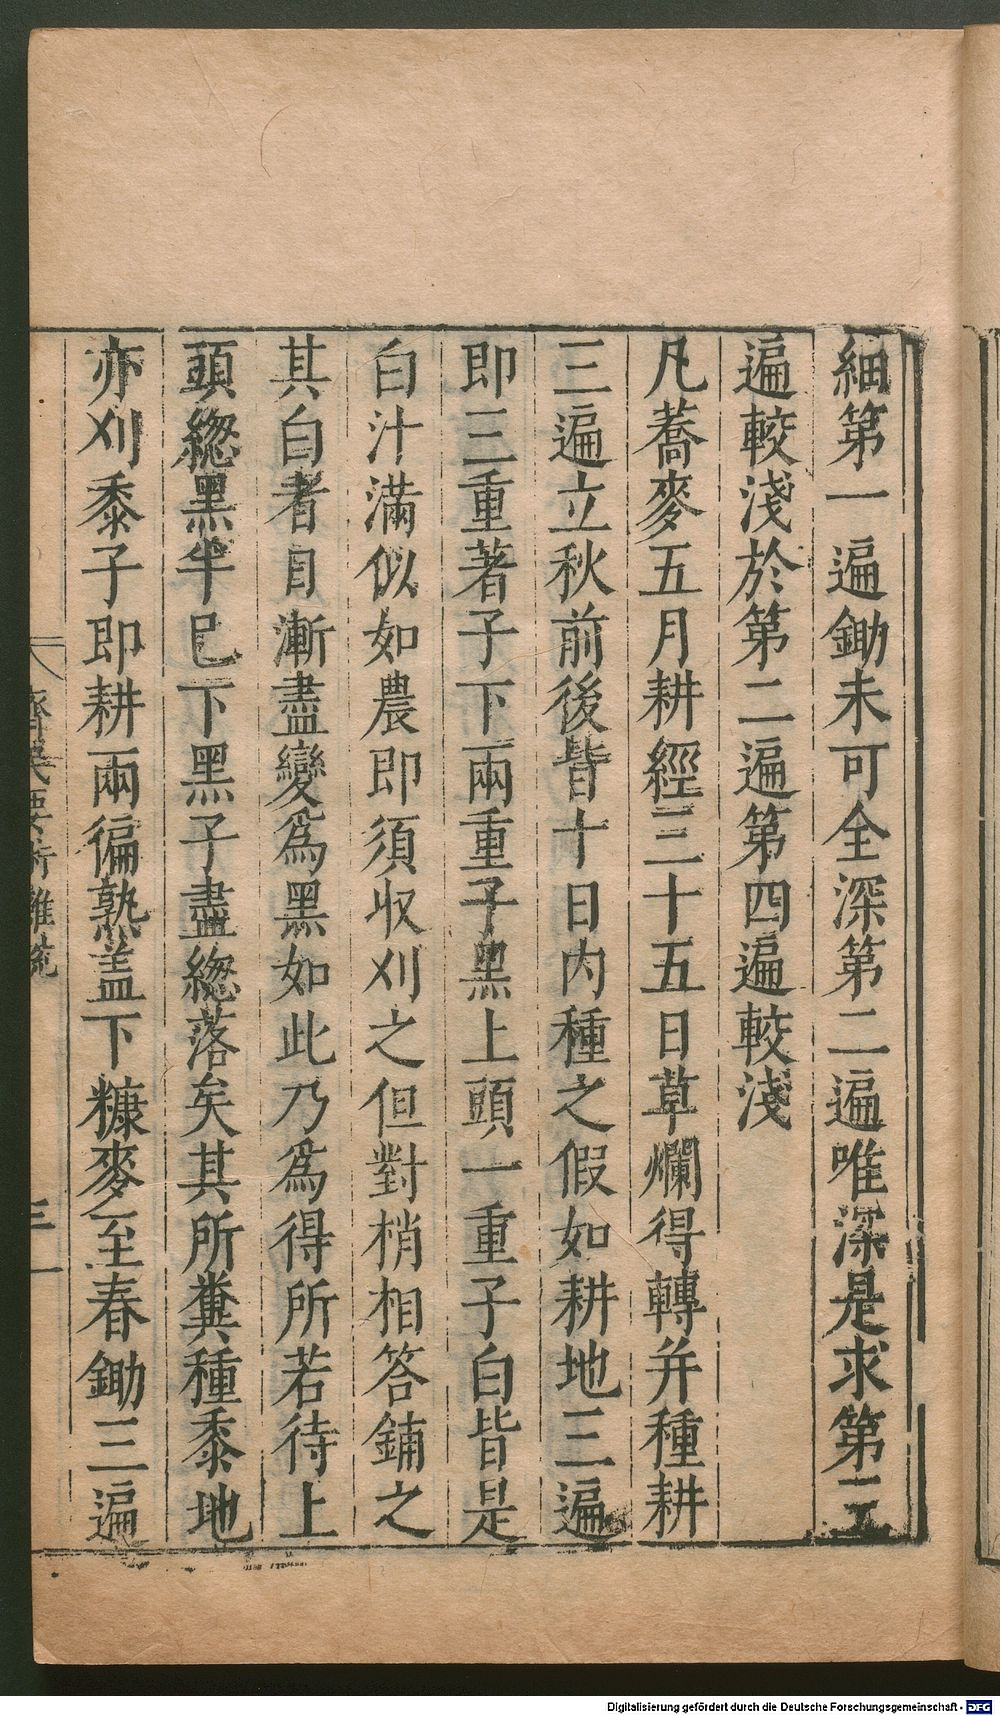 細第一遍鋤未可全深第二遍唯深是求第三
遍較淺於第二遍第四遍較淺
凡蕎麥五月耕經三十五日草爛得轉并種耕
三遍立秋前後皆十日內種之假如耕地三遍
即三重著子下兩重子黑上頭一重子白皆是
白汁滿似如農即須收刈之但對梢相答鋪之
其白者自漸盡變爲黑如此乃爲得所若待上
頭緫黑半已下黑子盡緫落矣其所糞種黍地
亦刈黍子即耕兩徧熟盖下糠麥至春鋤三遍
齊民要術雜說
Digitalisierung gefördert durch die Deutsche Forschungsgemeinschaft - DFG